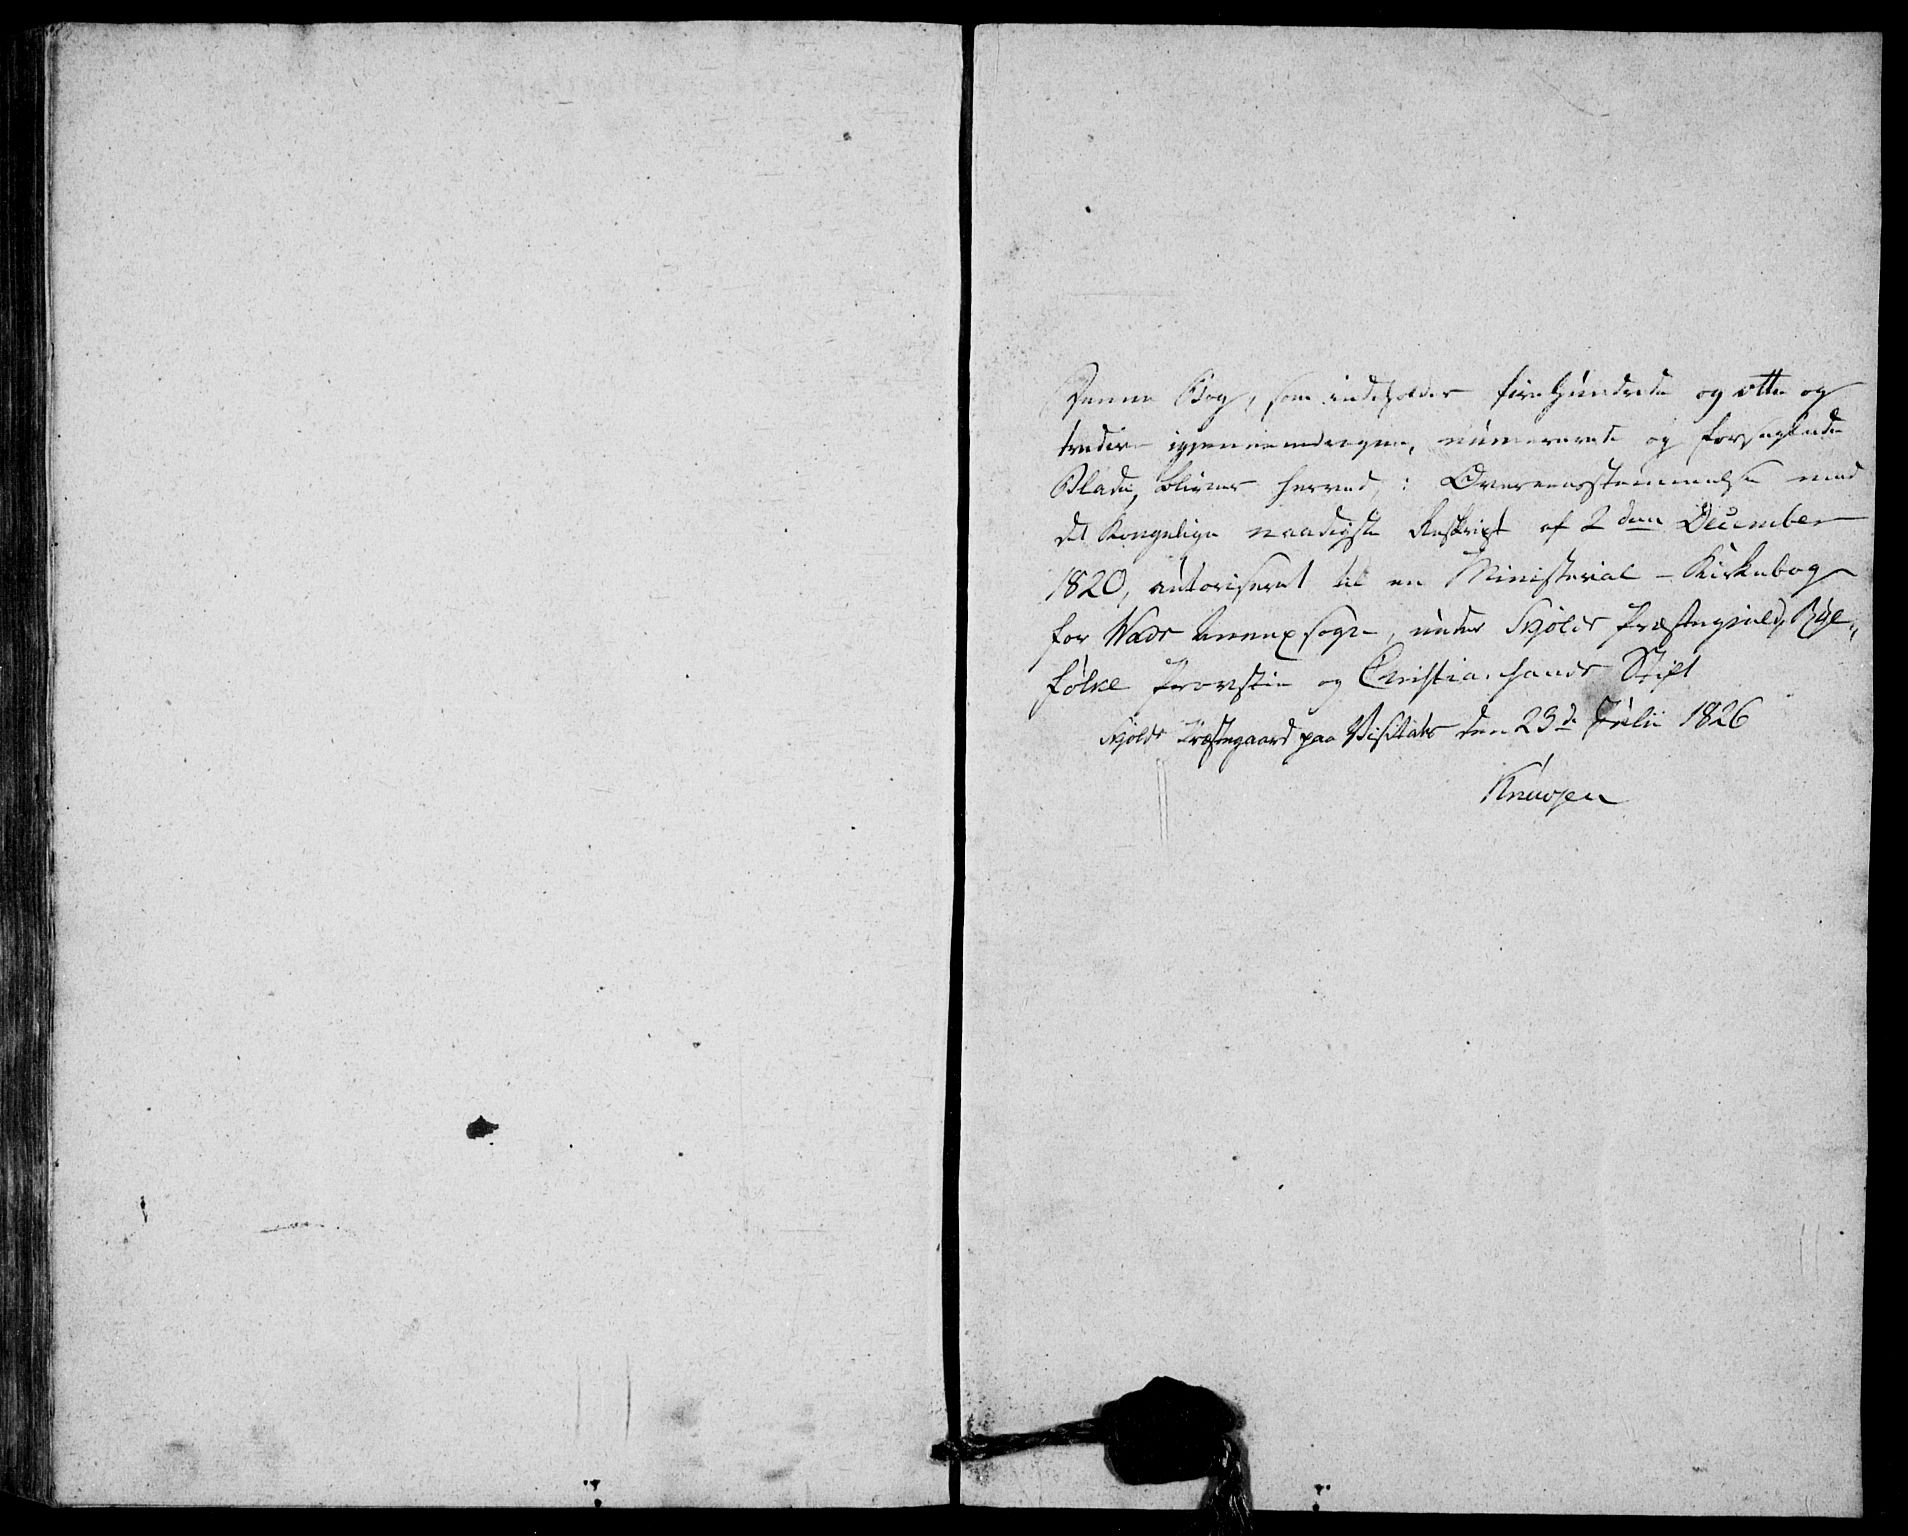 Denne Bog, som indeholder fire Hundrede og otte og
tredive igjennemdragne, numererede og forseglede
Blade, bliver herved, i Overeensstemmelse med
det Kongelige naadigste Reskript af 2den December
1820, autoriseret til en Ministerial-Kirkebog
for Wads Annexsogn, under Skjolds Præstegjeld, Rye-
fylke Provstie og Christiansands Stift
Skjolds Præstegaard paa Visitats den 23de Julii 1826